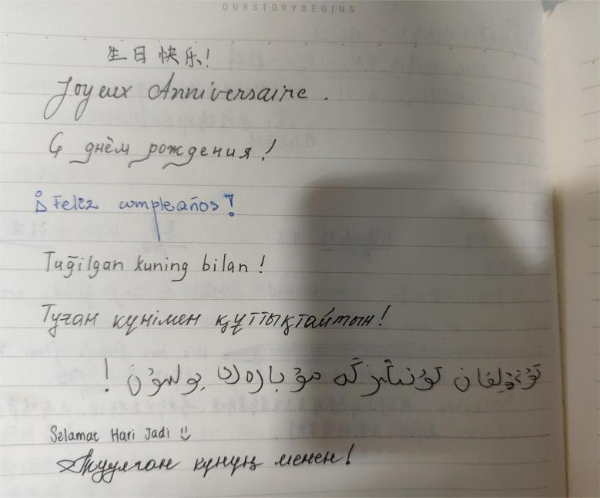 OURSTORYBEGINS
生日快乐!
Joyeux Anniversaire.
С днём рождения!
¡Feliz cumpleaños!
Tuğilgan kuning bilan!
Туған күнімен құттықтаймын!
تۇغۇلغان كۈنىڭىزگە مۇبارەك بولسۇن!
Selamat Hari Jadi
Туулган күнүң менен!